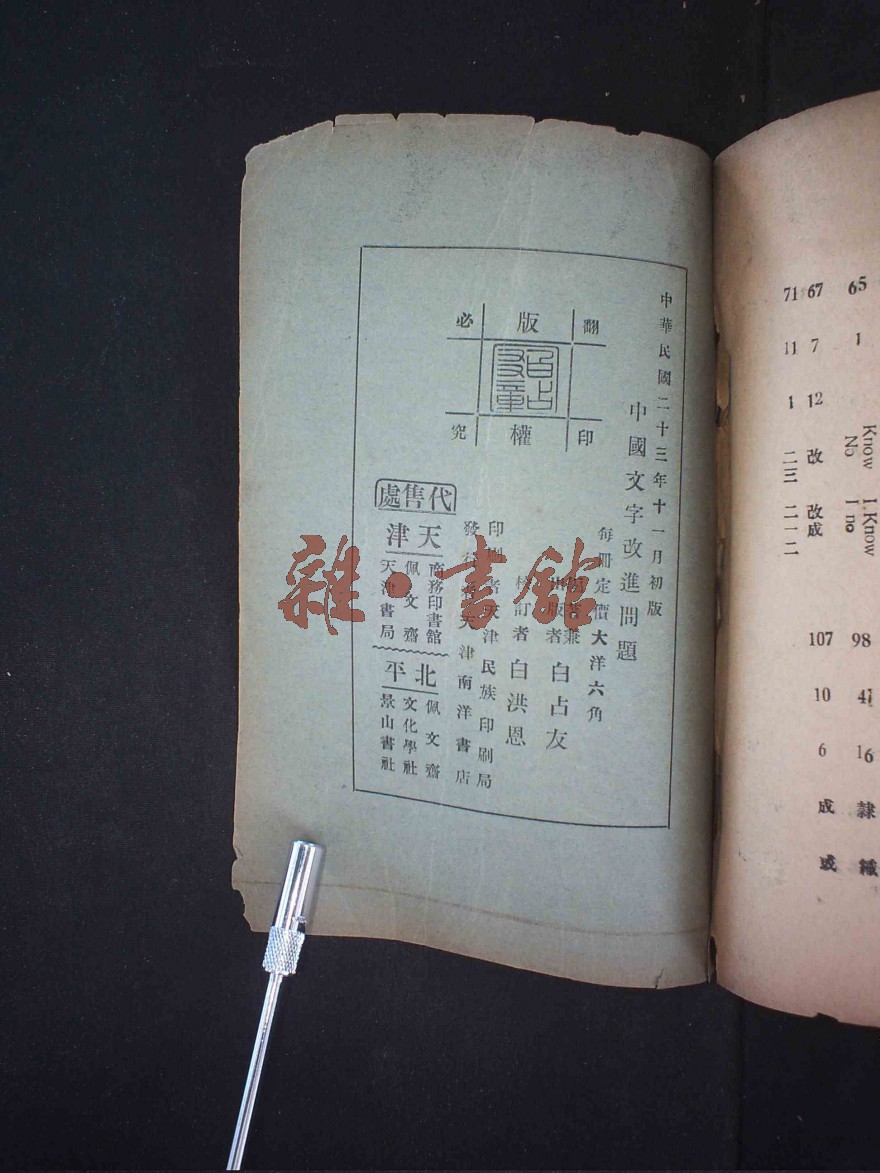 65 1 Know I.Know
Nb I no
98 41 16 隸 織
67 7 12 改 改成
107 10 6 成 或
71 11 1 二三 二一二
中華民國二十三年十一月初版
中國文字改進問題
每冊定價大洋六角
著兼
版者
白占友
校訂者 白洪恩
印刷者天津民族印刷局
發行者天津南洋書店
版權
翻印必究
白占友章
代售處
天津
商務印書館
佩文齋
天津書局
北平
佩文齋
文化學社
景山書社
雜·書館